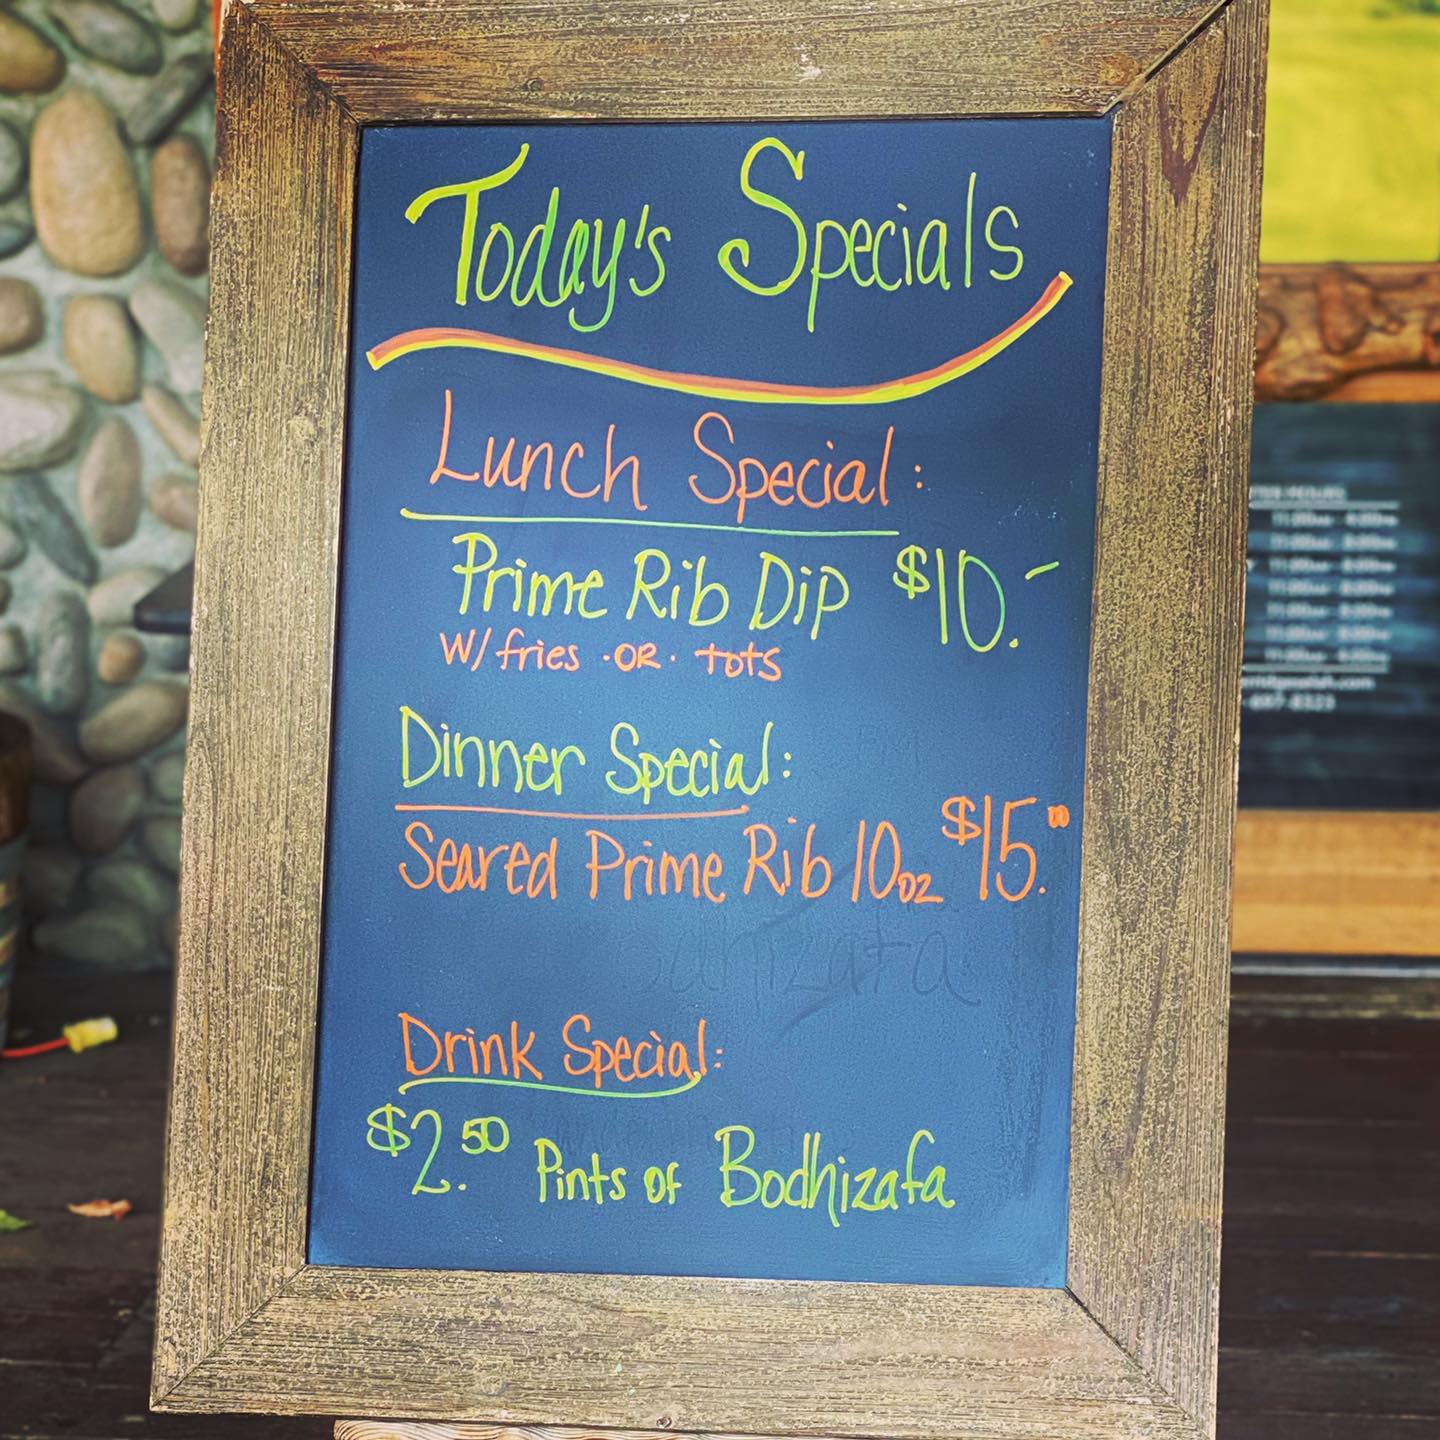 Today's Specials
Lunch Special:
Prime Rib Dip $10.-
W/ fries ·OR· tots
Dinner Special:
Seared Prime Rib 10oz $15.00
Drink Special:
$2.50 Pints of Bodhizafa